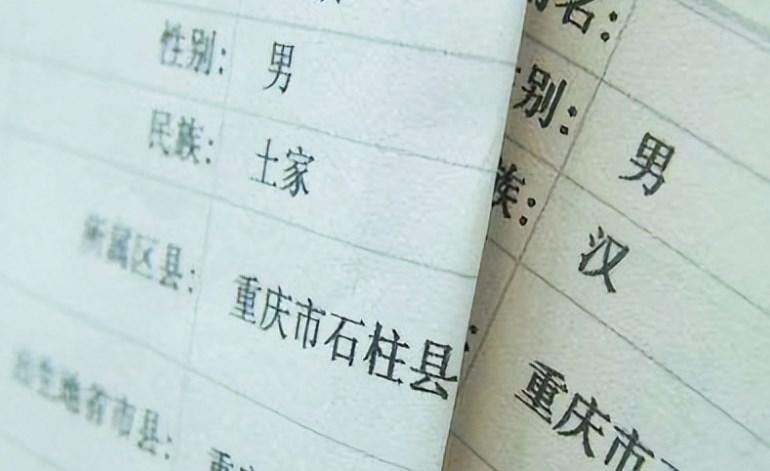 性别： 男
民族： 土家
所属区县： 重庆市石柱县
出生地省市县： 重
名：
别： 男
族： 汉
重庆市